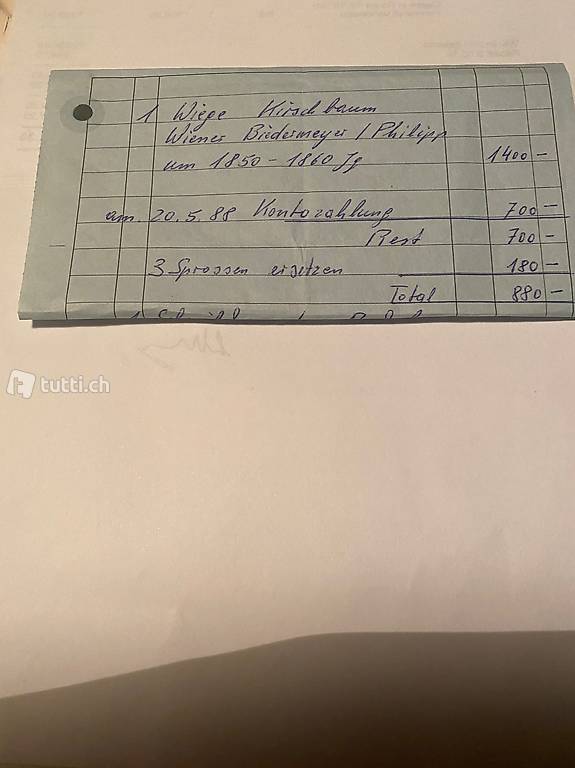 1 Wiege Kirschbaum
Wiener Biedermeyer / Philipp
um 1850 - 1860 Jg 1400 –
am. 20. 5. 88 Kontozahlung 700 –
Rest 700 –
3 Sprossen ersetzen 180 –
Total 880 –
tutti.ch